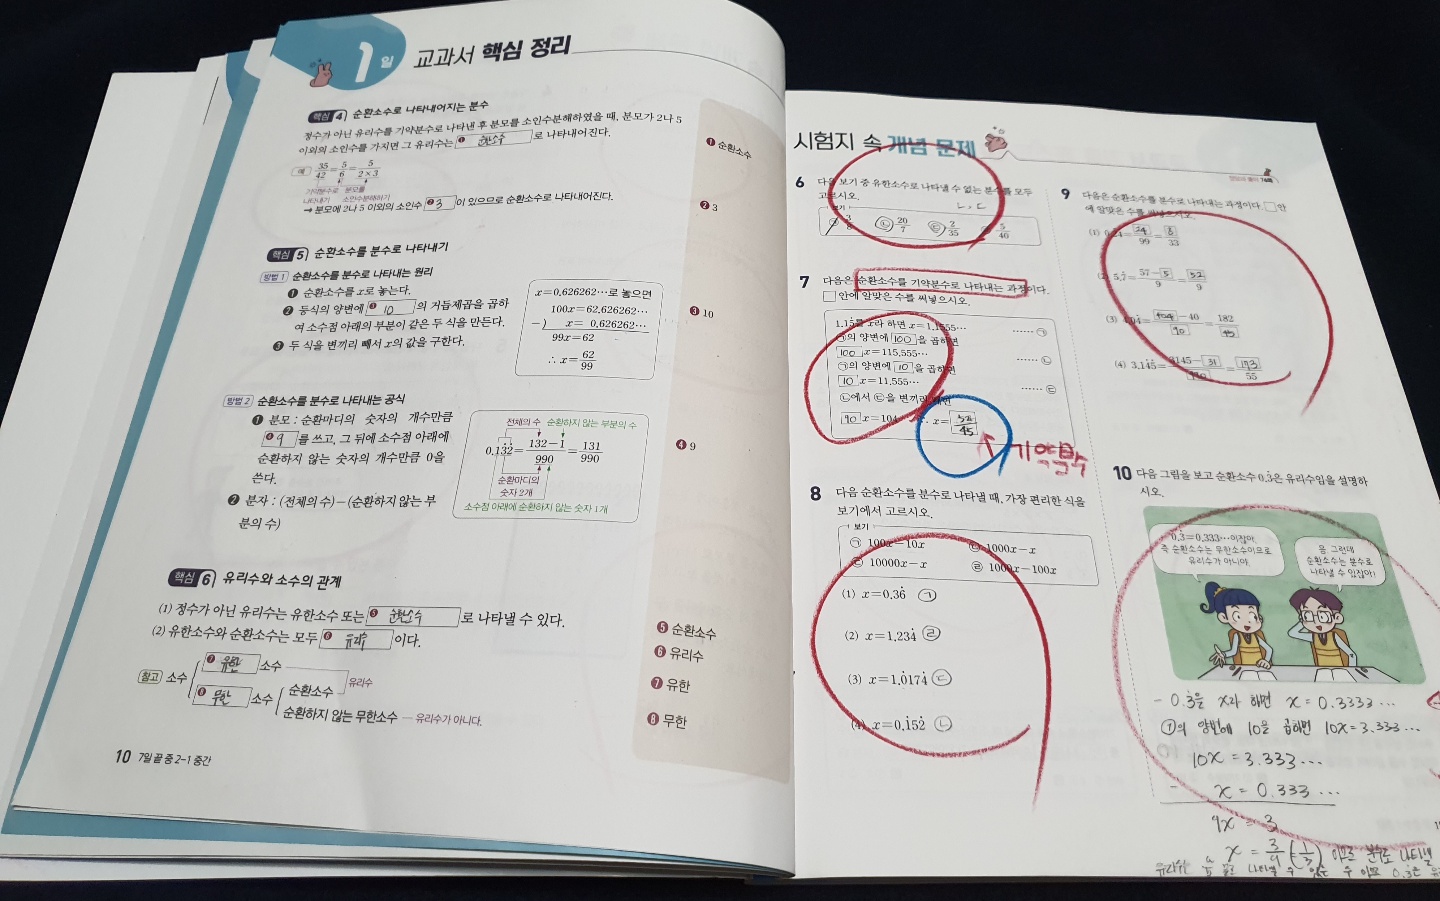 1일 교과서 핵심 정리
핵심 4 순환소수로 나타내어지는 분수
정수가 아닌 유리수를 기약분수로 나타낸 후 분모를 소인수분해하였을 때, 분모가 2나 5
이외의 소인수를 가지면 그 유리수는 ❶ 순환소수 로 나타내어진다.
예 35/42=5/6=5/2×3
기약분수로 나타내기 분모를 소인수분해하기
→ 분모에 2나 5 이외의 소인수 ❷ 3 이 있으므로 순환소수로 나타내어진다.
핵심 5 순환소수를 분수로 나타내기
방법 1 순환소수를 분수로 나타내는 원리
❶ 순환소수를 x로 놓는다.
❷ 등식의 양변에 ❸ 10 의 거듭제곱을 곱하
여 소수점 아래의 부분이 같은 두 식을 만든다.
❸ 두 식을 변끼리 빼서 x의 값을 구한다.
x=0.626262…로 놓으면
100x=62.626262…
−) x= 0.626262…
99x=62
∴ x=62/99
방법 2 순환소수를 분수로 나타내는 공식
❶ 분모 : 순환마디의 숫자의 개수만큼
❹ 9 를 쓰고, 그 뒤에 소수점 아래에
순환하지 않는 숫자의 개수만큼 0을
쓴다.
❷ 분자 : (전체의 수)−(순환하지 않는 부
분의 수)
전체의 수 순환하지 않는 부분의 수
0.13̇2̇=132−1/990=131/990
순환마디의
숫자 2개
소수점 아래에 순환하지 않는 숫자 1개
핵심 6 유리수와 소수의 관계
(1) 정수가 아닌 유리수는 유한소수 또는 ❺ 순환소수 로 나타낼 수 있다.
(2) 유한소수와 순환소수는 모두 ❻ 유리수 이다.
참고 소수
❼ 유한 소수
❽ 무한 소수
순환소수
유리수
순환하지 않는 무한소수 — 유리수가 아니다.
❶ 순환소수
❷ 3
❸ 10
❹ 9
❺ 순환소수
❻ 유리수
❼ 유한
❽ 무한
10 7일 끝 중 2-1 중간
시험지 속 개념 문제
6 다음 보기 중 유한소수로 나타낼 수 없는 분수를 모두
고르시오. ㄴ, ㄷ
보기
㉠ 3/8 ㉡ 20/7 ㉢ 2/35 5/40
7 다음은 순환소수를 기약분수로 나타내는 과정이다.
□ 안에 알맞은 수를 써넣으시오.
1.15̇를 x라 하면 x=1.1555… …… ㉠
㉠의 양변에 100 을 곱하면
100 x=115.555… …… ㉡
㉠의 양변에 10 을 곱하면
10 x=11.555… …… ㉢
㉡에서 ㉢을 변끼리 빼면
90 x=104 ∴ x= 52/45
기약분수
8 다음 순환소수를 분수로 나타낼 때, 가장 편리한 식을
보기에서 고르시오.
보기
㉠ 100x−10x ㉡ 1000x−x
㉢ 10000x−x ㉣ 1000x−100x
(1) x=0.36̇ ㉠
(2) x=1.234̇ ㉣
(3) x=1.0̇174̇ ㉢
(4) x=0.1̇52̇ ㉡
9 다음은 순환소수를 분수로 나타내는 과정이다. □ 안
에 알맞은 수를 써넣으시오.
(1) 0.2̇4̇= 24/99 = 8/33
(2) 5.7̇= 57− 5/9 = 52/9
(3) 4.04̇= 404 −40/90 =182/45
(4) 3.14̇5̇= 3145− 31/990 = 173/55
10 다음 그림을 보고 순환소수 0.3̇은 유리수임을 설명하
시오.
0.3̇=0.333…이잖아.
즉 순환소수는 무한소수이므로
유리수가 아니야.
음, 그런데
순환소수는 분수로
나타낼 수 있잖아!
- 0.3̇을 x라 하면 x = 0.3333 ...
①의 양변에 10을 곱하면 10x = 3.333 ...
10x = 3.333 ...
- x = 0.333 ...
9x = 3
x = 3/9 (=1/3) 이므로 분수로 나타낼